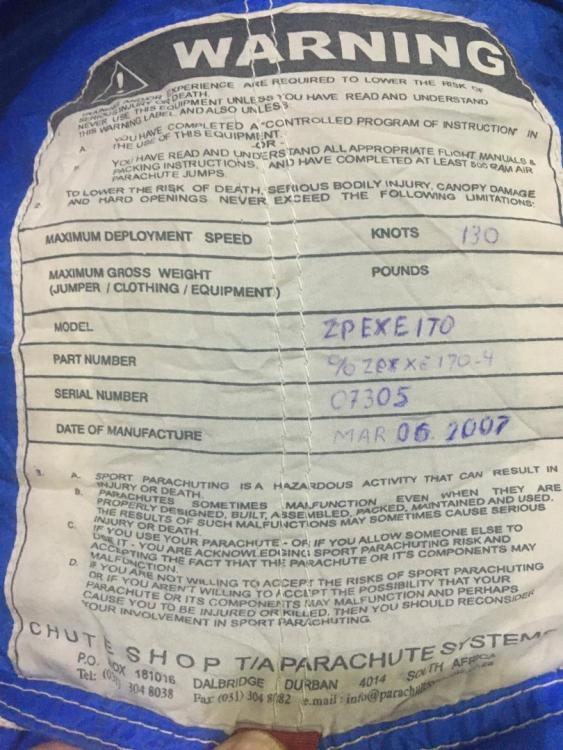 WARNING
EXPERIENCE ARE REQUIRED TO LOWER THE RISK OF
SERIOUS INJURY OR DEATH.
NEVER USE THIS EQUIPMENT UNLESS YOU HAVE READ AND UNDERSTAND
THIS WARNING LABEL, AND ALSO UNLESS:
A. YOU HAVE COMPLETED A "CONTROLLED PROGRAM OF INSTRUCTION" IN
THE USE OF THIS EQUIPMENT.
-OR-
YOU HAVE READ AND UNDERSTAND ALL APPROPRIATE FLIGHT MANUALS &
PACKING INSTRUCTIONS, AND HAVE COMPLETED AT LEAST 500 RAM AIR
PARACHUTE JUMPS.
2. TO LOWER THE RISK OF DEATH, SERIOUS BODILY INJURY, CANOPY DAMAGE
AND HARD OPENINGS NEVER EXCEED THE FOLLOWING LIMITATIONS:
MAXIMUM DEPLOYMENT SPEED KNOTS 130
MAXIMUM GROSS WEIGHT POUNDS
(JUMPER / CLOTHING / EQUIPMENT)
MODEL ZPEXE170
PART NUMBER % ZPEXE170-4
SERIAL NUMBER 07305
DATE OF MANUFACTURE MAR 06 2007
3. A. SPORT PARACHUTING IS A HAZARDOUS ACTIVITY THAT CAN RESULT IN
INJURY OR DEATH.
B. PARACHUTES SOMETIMES MALFUNCTION EVEN WHEN THEY ARE
PROPERLY DESIGNED, BUILT, ASSEMBLED, PACKED, MAINTAINED AND USED.
THE RESULTS OF SUCH MALFUNCTIONS MAY SOMETIMES CAUSE SERIOUS
INJURY OR DEATH.
C. IF YOU USE YOUR PARACHUTE - OR IF YOU ALLOW SOMEONE ELSE TO
USE IT - YOU ARE ACKNOWLEDGING SPORT PARACHUTING RISK AND
ACCEPTING THE FACT THAT THE PARACHUTE OR IT'S COMPONENTS MAY
MALFUNCTION.
D. IF YOU ARE NOT WILLING TO ACCEPT THE RISKS OF SPORT PARACHUTING
OR IF YOU AREN'T WILLING TO ACCEPT THE POSSIBILITY THAT YOUR
PARACHUTE OR ITS COMPONENTS MAY MALFUNCTION AND PERHAPS
CAUSE YOU TO BE INJURED OR KILLED, THEN YOU SHOULD RECONSIDER
YOUR INVOLVEMENT IN SPORT PARACHUTING.
CHUTE SHOP T/A PARACHUTE SYSTEMS
P.O. BOX 181016 DALBRIDGE DURBAN 4014 SOUTH AFRICA
Tel: (031) 304 8038 Fax: (031) 304 8082 e.mail: info@